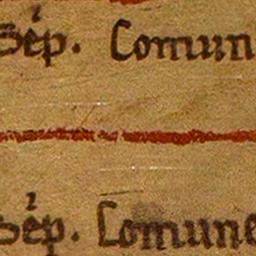 Sep. Comun
Sep. Comune